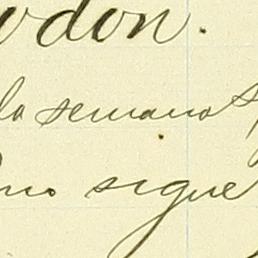 odon.
la semana
mo sigue